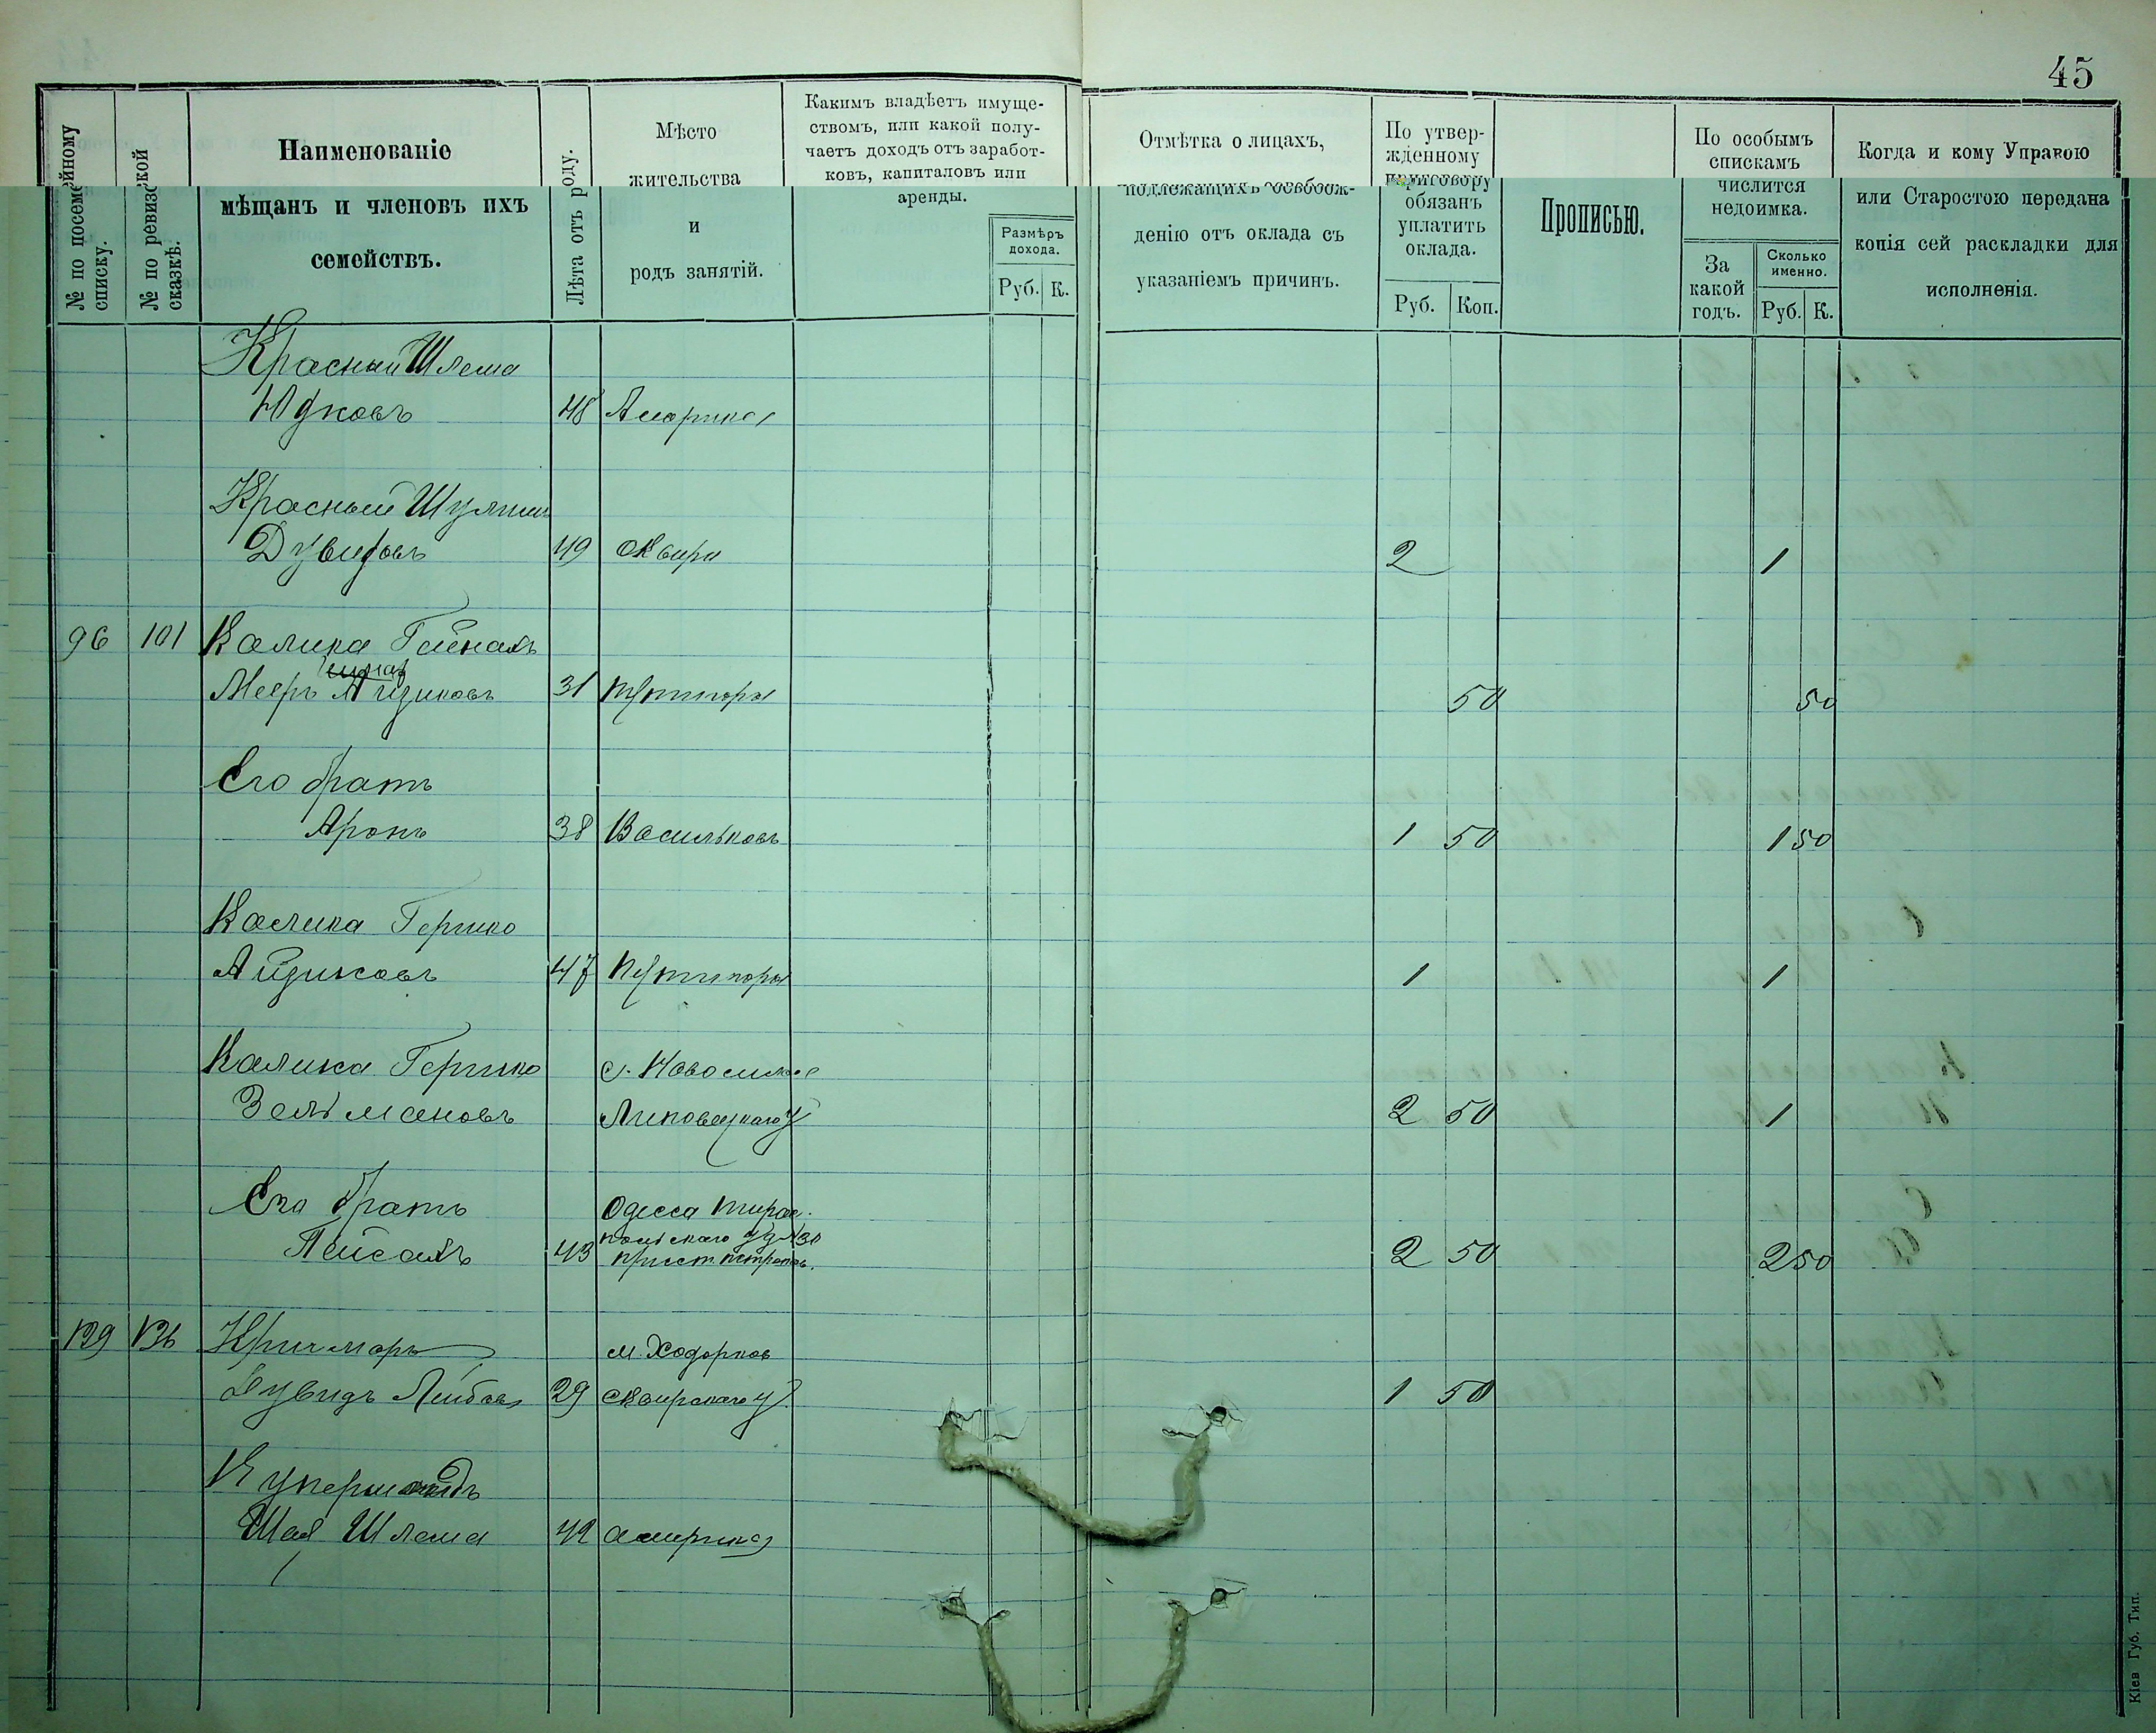 45
№ по посемейному списку.
№ по ревизской сказкѣ.
Наименованіе
мѣщанъ и членовъ ихъ
семействъ.
Лѣта отъ роду.
Мѣсто
жительства
и
родъ занятій.
Какимъ владѣетъ имуще-
ствомъ, или какой полу-
чаетъ доходъ отъ заработ-
ковъ, капиталовъ или
аренды.
Размѣръ
дохода.
Руб. К.
Отмѣтка о лицахъ,
подлежащихъ освобож-
денію отъ оклада съ
указаніемъ причинъ.
По утвер-
жденному
приговору
обязанъ
уплатить
оклада.
Руб. Коп.
Прописью.
По особымъ
спискамъ
числится
недоимка.
За
какой
годъ.
Сколько
именно.
Руб. К.
Когда и кому Управою
или Старостою передана
копія сей раскладки для
исполненія.
Красный Шлема
Юдковъ 48 Америка
Красный Шулим
Дувидовъ 49 Сквира 2 1
96 101 Калика
Мееръ Айзиковъ 31 50 50
Его братъ
Аронъ 38 Васильковъ 1 50 1 50
Калика Гершко
Айзиковъ 47 1 1
Калика Гершко с.
Зельмановъ Липовецкаго у 2 50 1
Его братъ Одесса Тирас-
польскаго
Пейсахъ 43 2 50 2 50
129 136 Кричмаръ м. Ходорков
Дувидъ Лейбовъ 29 Сквирскаго у. 1 50
Шая Шлема 42 Америка
Кіев Губ. Тип.